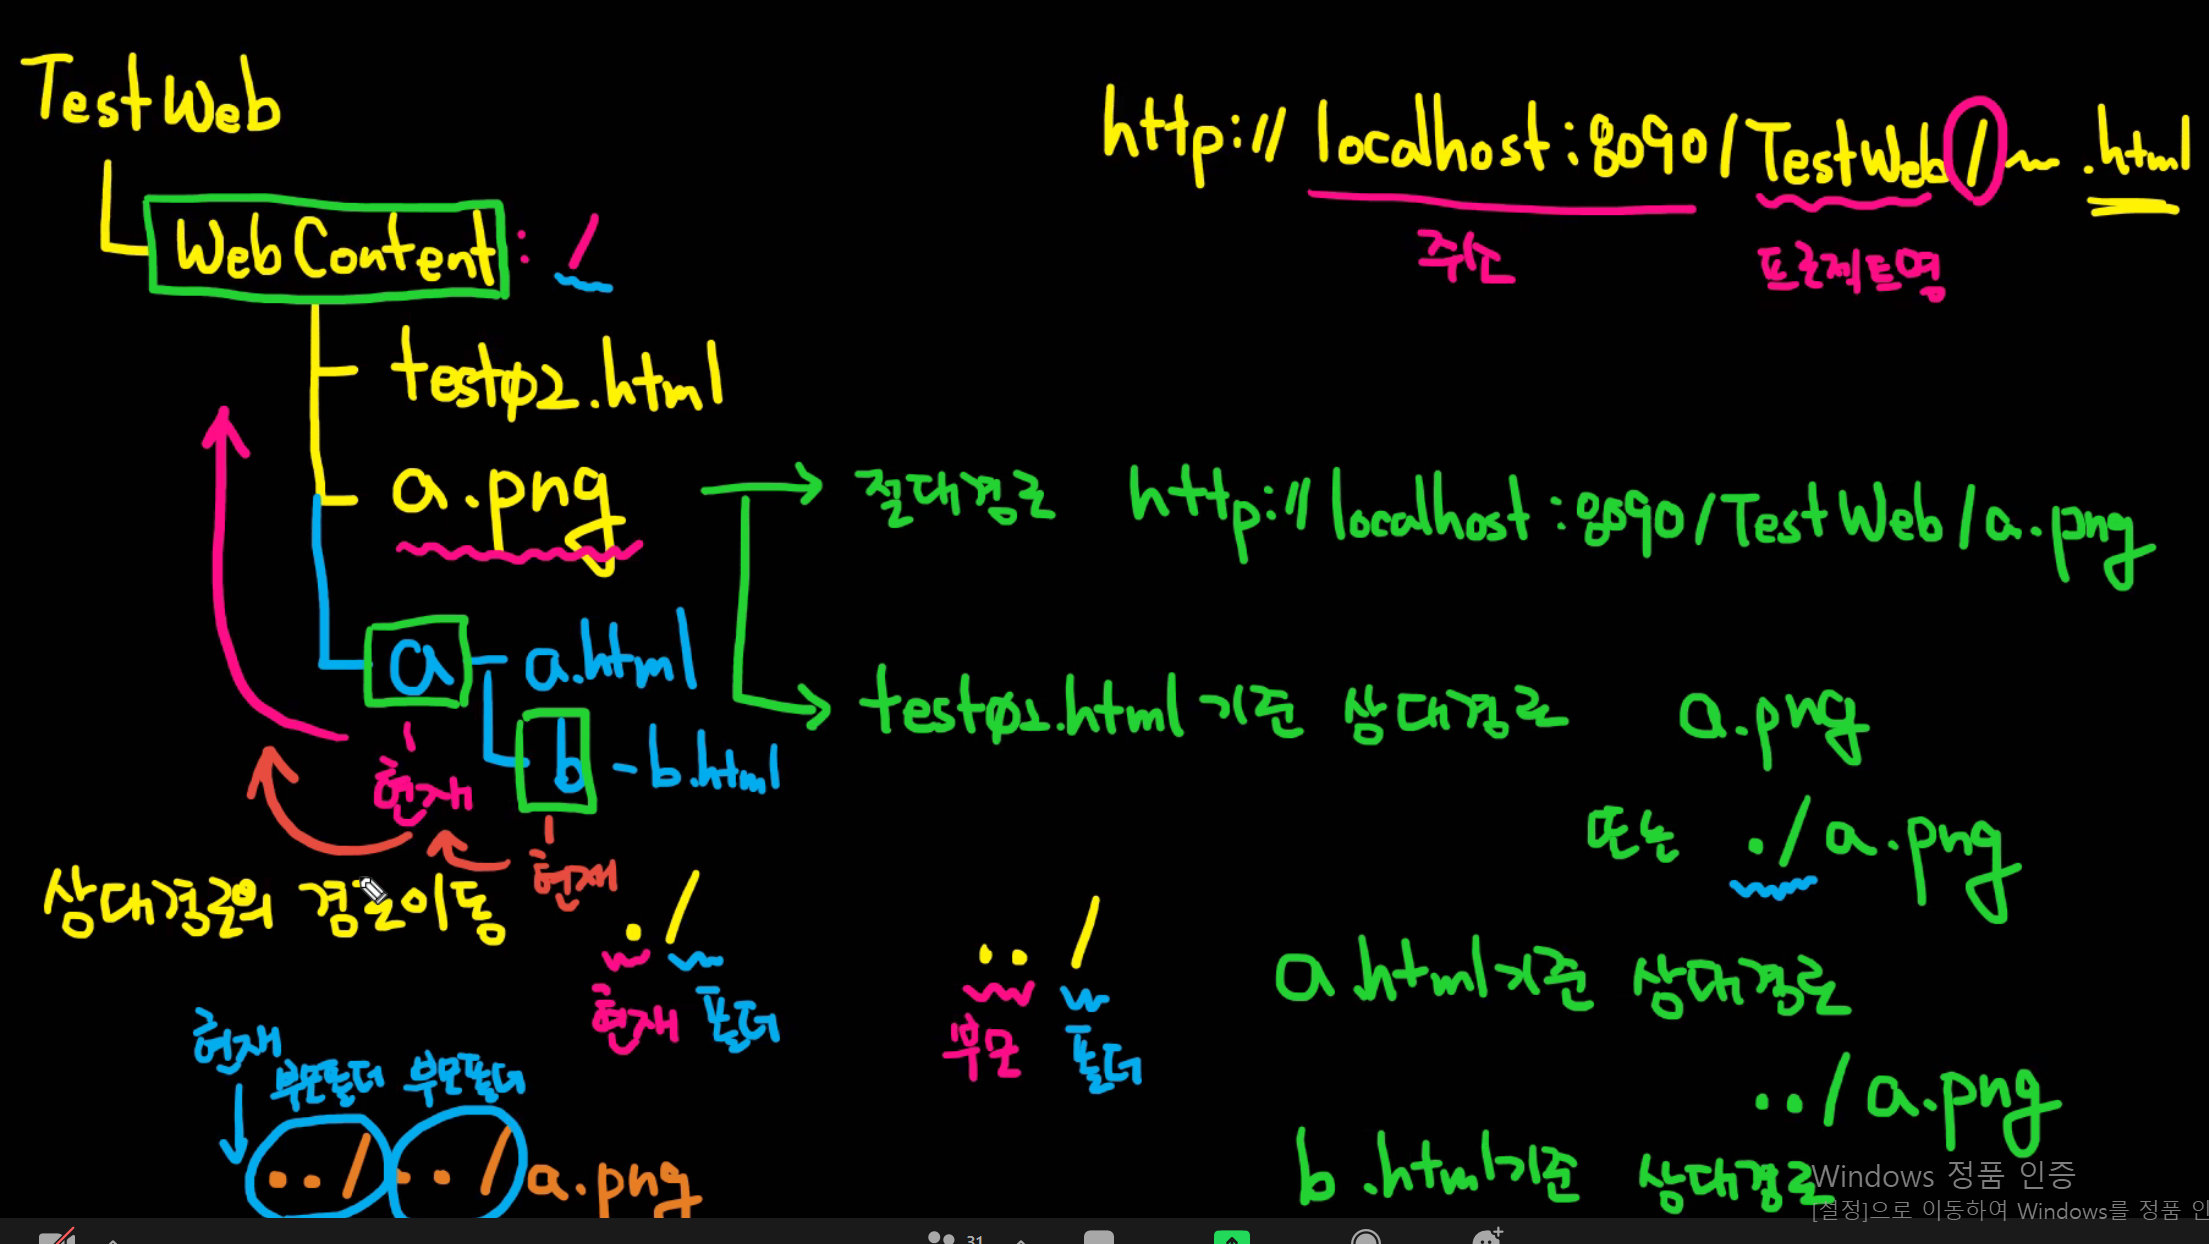 TestWeb
http://localhost:8090/TestWeb/~.html
주소
프로젝트명
WebContent : /
test02.html
a.png
절대경로 http://localhost:8090/TestWeb/a.png
a - a.html
test02.html기준 상대경로 a.png
b - b.html
현재
또는 ./a.png
현재
상대경로의 경로이동
./
현재 폴더
../
부모 폴더
a.html기준 상대경로
../a.png
현재
부모폴더 부모폴더
../../a.png
b.html기준 상대경로
Windows 정품 인증
[설정]으로 이동하여 Windows를 정품 인
31